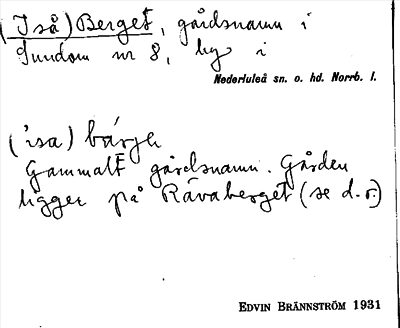 (Iså) Berget, gårdsnamn i
Sundom nr 8, by i
Nederluleå sn. o. hd. Norrb. l.
(ìsa) bárjə
Gammalt gårdsnamn. Gården
ligger på Råvaberget (se d.o.)
EDVIN BRÄNNSTRÖM 1931